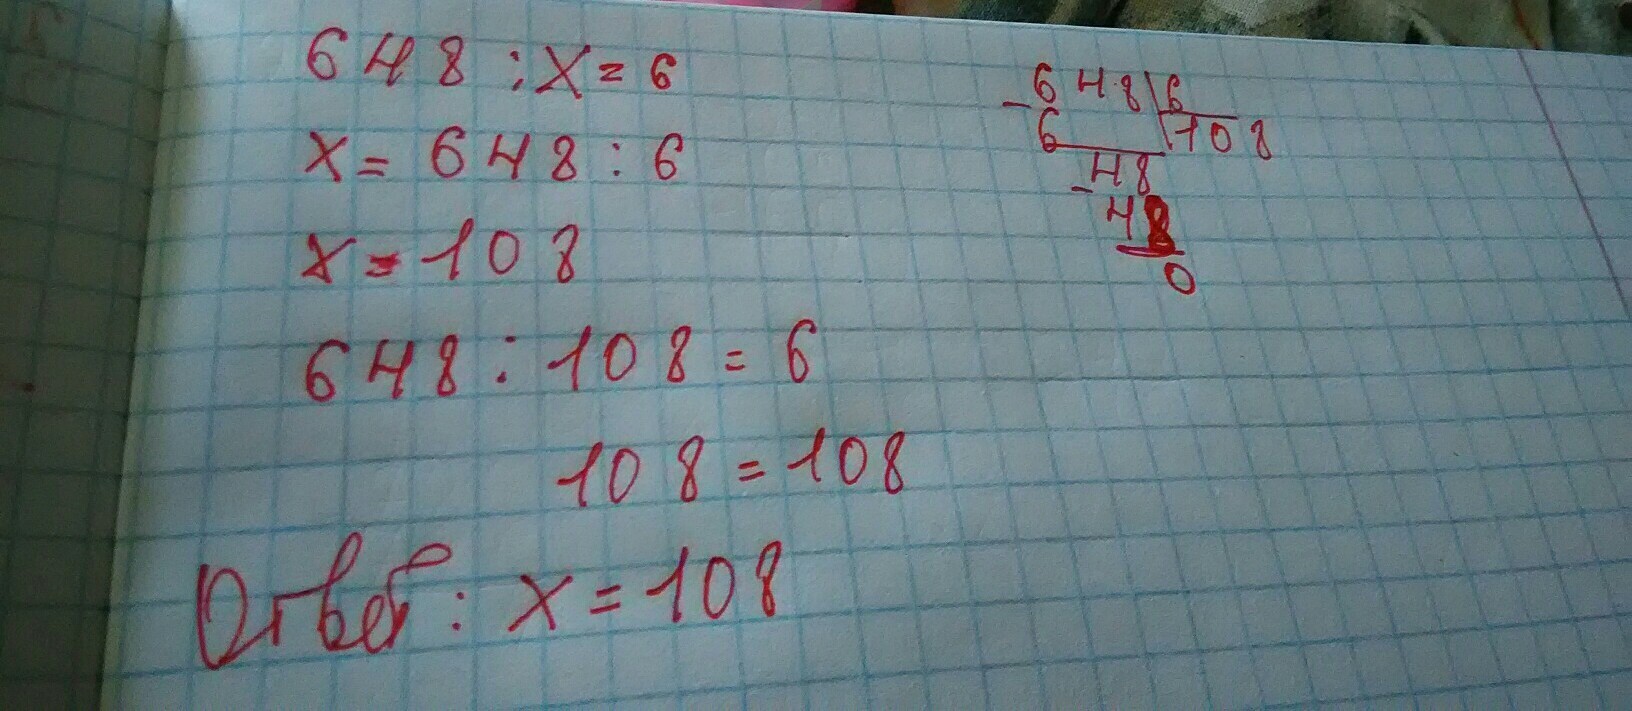 648 : x = 6
x = 648 : 6
x = 108
648 : 108 = 6
108 = 108
Ответ : x = 108
- 648 6
6 108
- 48
48
0